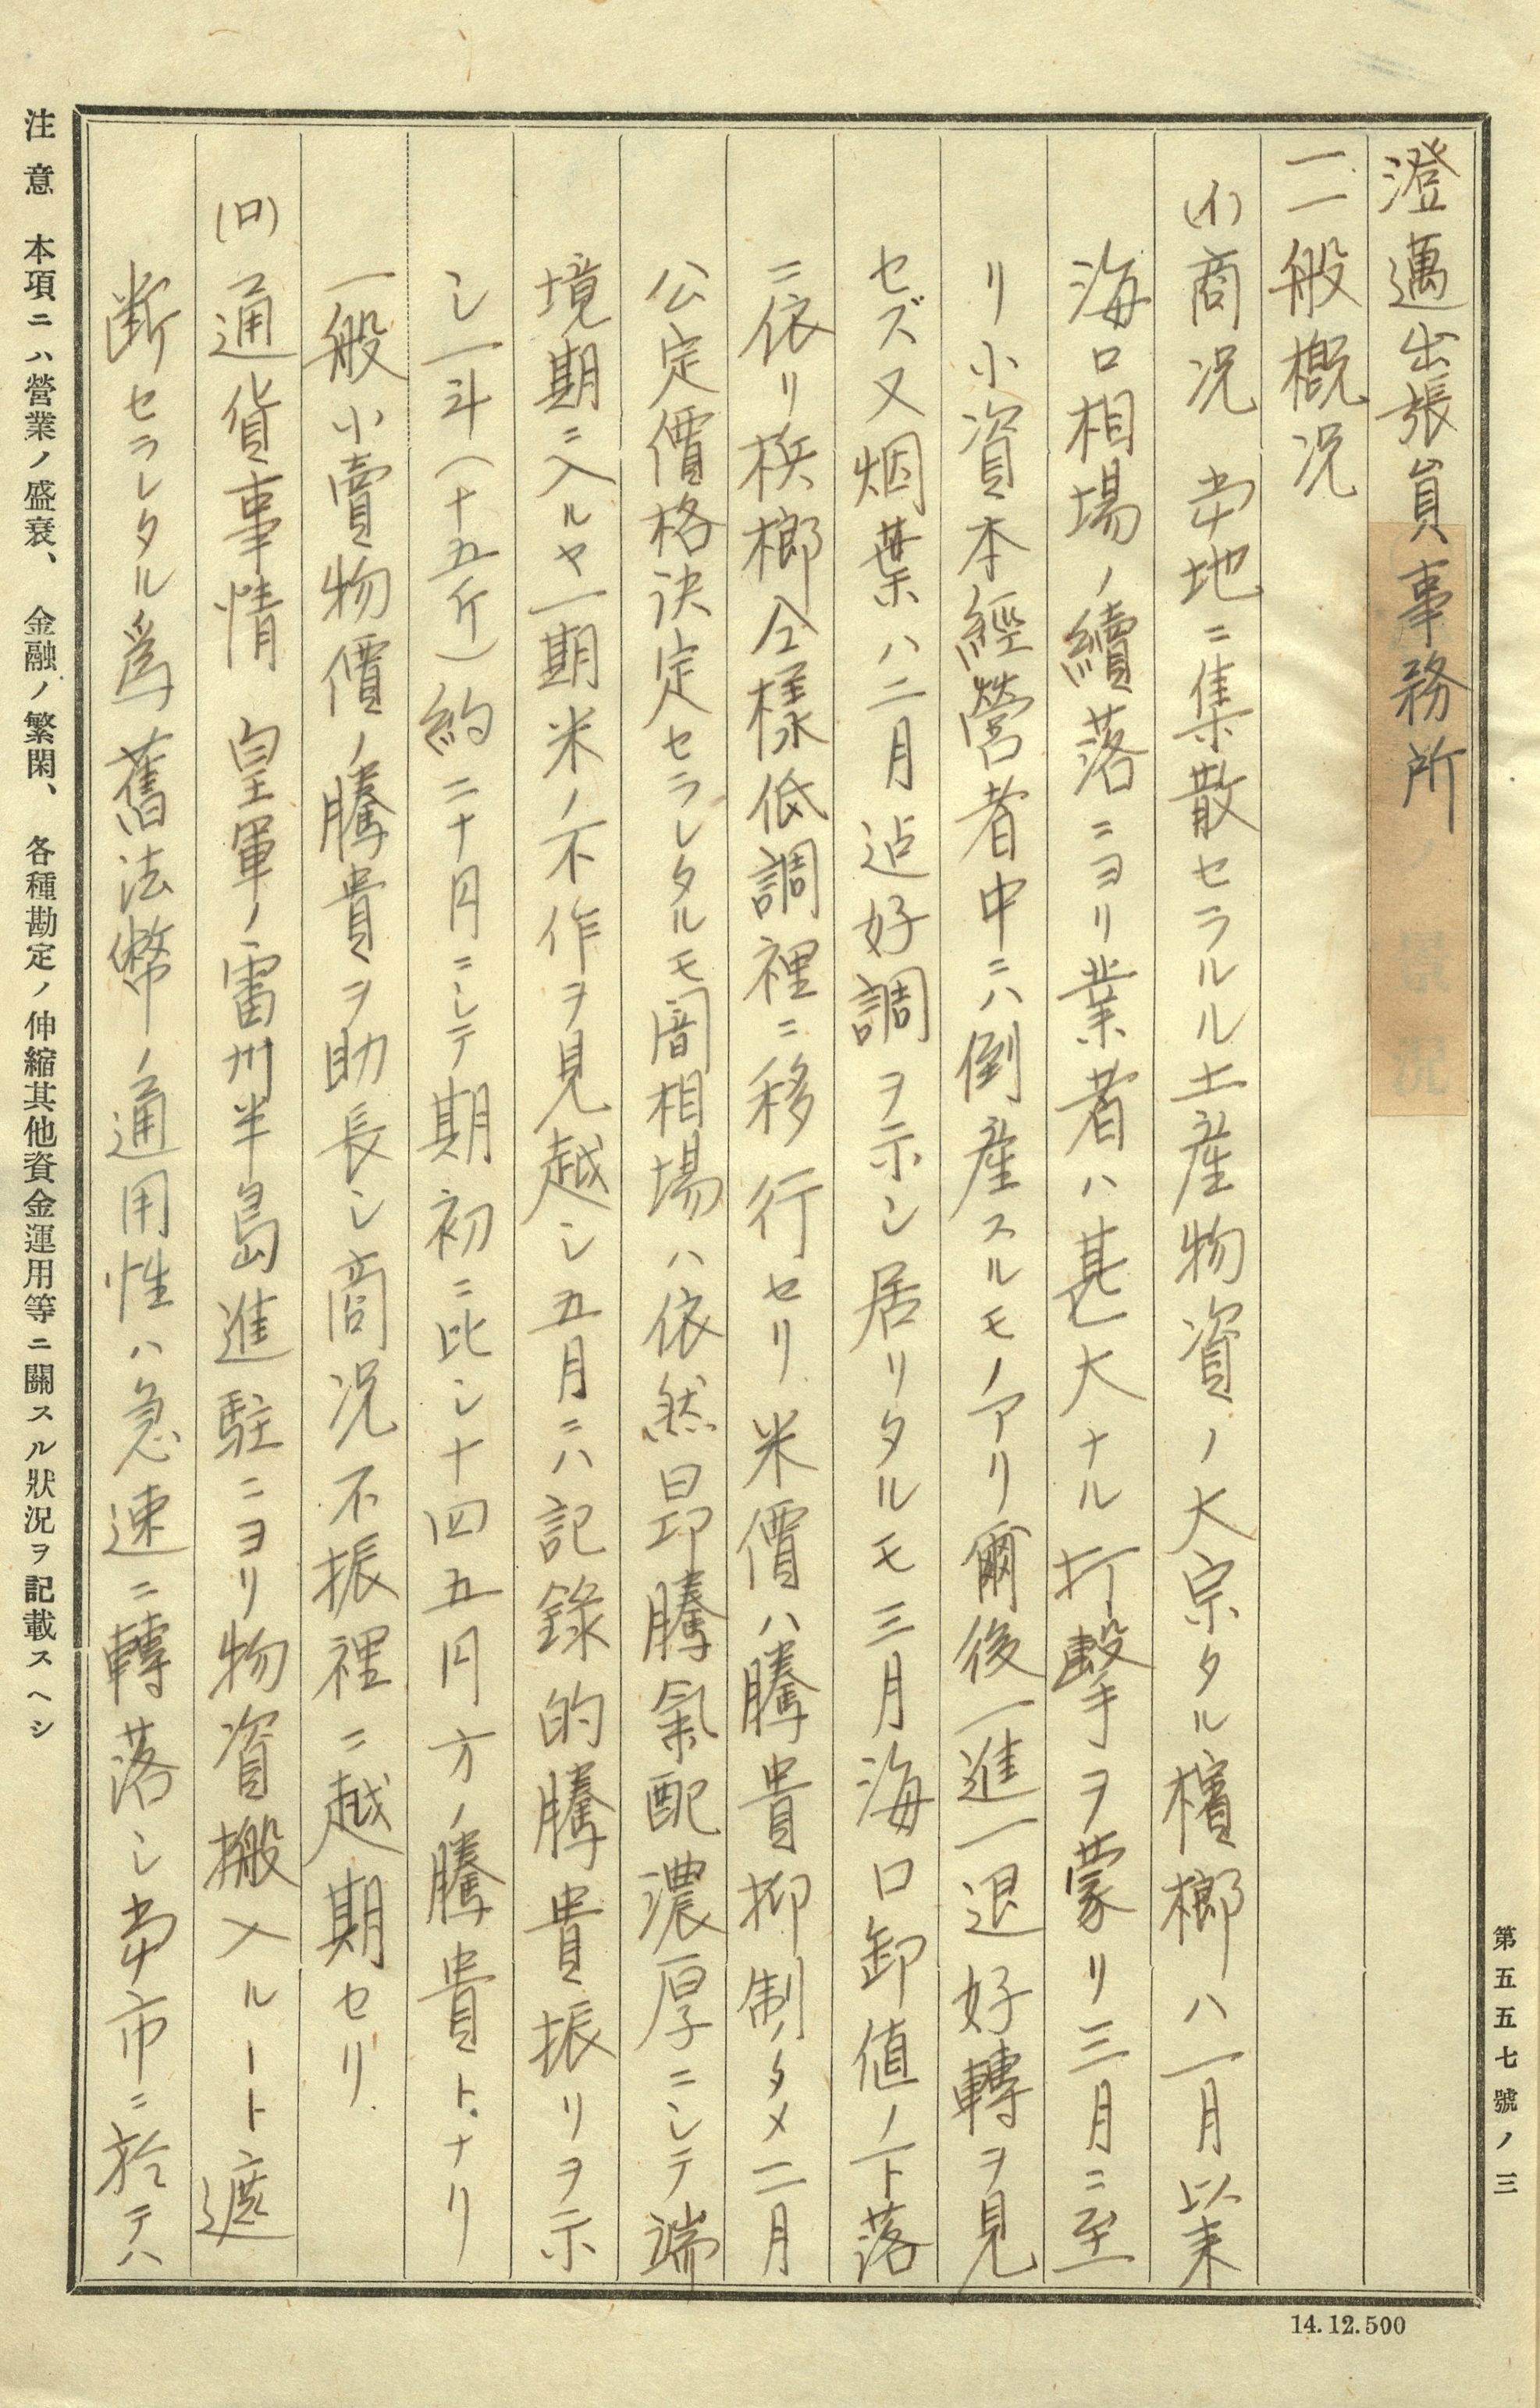 第五五七號ノ三
澄邁出張員事務所
一、一般概况
(イ)商况　当地ニ集散セラルル土産物資ノ大宗タル檳榔ハ一月以来
海口相場ノ續落ニヨリ業者ハ甚大ナル打擊ヲ蒙リ三月ニ至
リ小資本經營者中ニハ倒産スルモノアリ爾後一進一退好轉ヲ見
セズ又烟葉ハ二月迠好調ヲ示シ居リタルモ三月海口卸値ノ下落
ニ依リ梹榔仝樣低調裡ニ移行セリ米價ハ騰貴抑制ノタメ二月
公定價格决定セラレタルモ闇相場ハ依然昂騰氣配濃厚ニシテ端
境期ニ入ルヤ一期米ノ不作ヲ見越シ五月ニハ記錄的騰貴振リヲ示
シ一斗(十五斤)約二十円ニシテ期初ニ比シ十四五円方ノ騰貴トナリ
一般小賣物價ノ騰貴ヲ助長シ商况不振裡ニ越期セリ
(ロ)通貨事情　皇軍ノ雷州半島進駐ニヨリ物資搬入ルート遮
断セラレタル爲舊法幣ノ通用性ハ急速ニ轉落シ当市ニ於テハ
注意　本項ニハ營業ノ盛衰、金融ノ繁閑、各種勘定ノ伸縮其他資金運用等ニ關スル狀况ヲ記載スヘシ
14.12.500